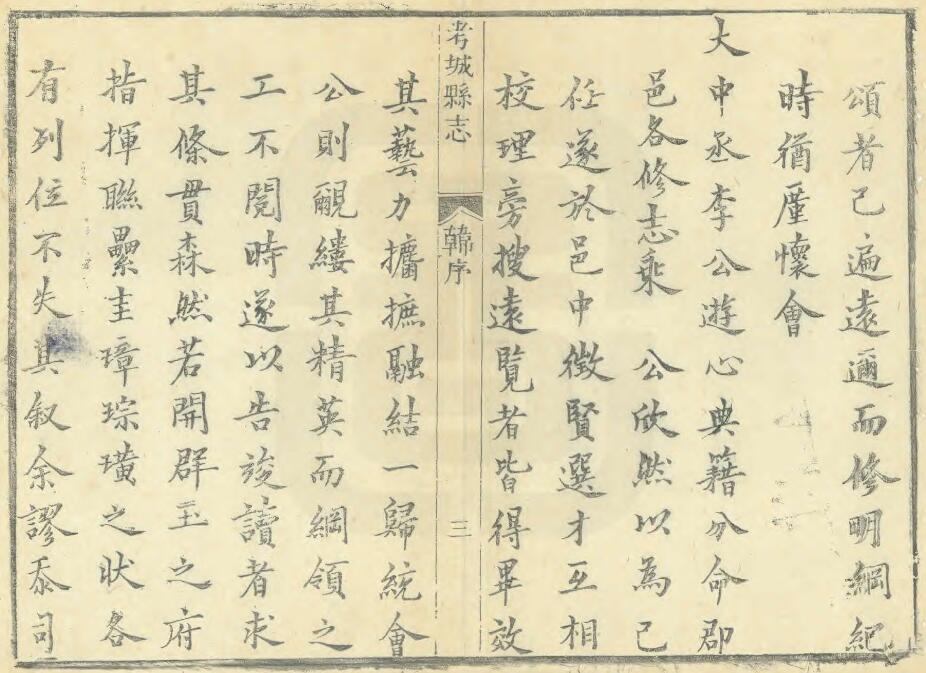 頌者已遍遠邇而修明綱紀
時猶廑懷會
大中丞李公遊心典籍分命郡
邑各修志乘 公欣然以為己
任遂於邑中徵賢選才互相
校理旁搜遠覽者皆得畢效
考城縣志 韓序 三
其藝力攟摭融結一歸統會
公則覼縷其精英而綱領之
工不閱時遂以告竣讀者求
其條貫森然若開群玉之府
指揮聯纍圭璋琮璜之狀各
有列位不失其叙余謬忝司